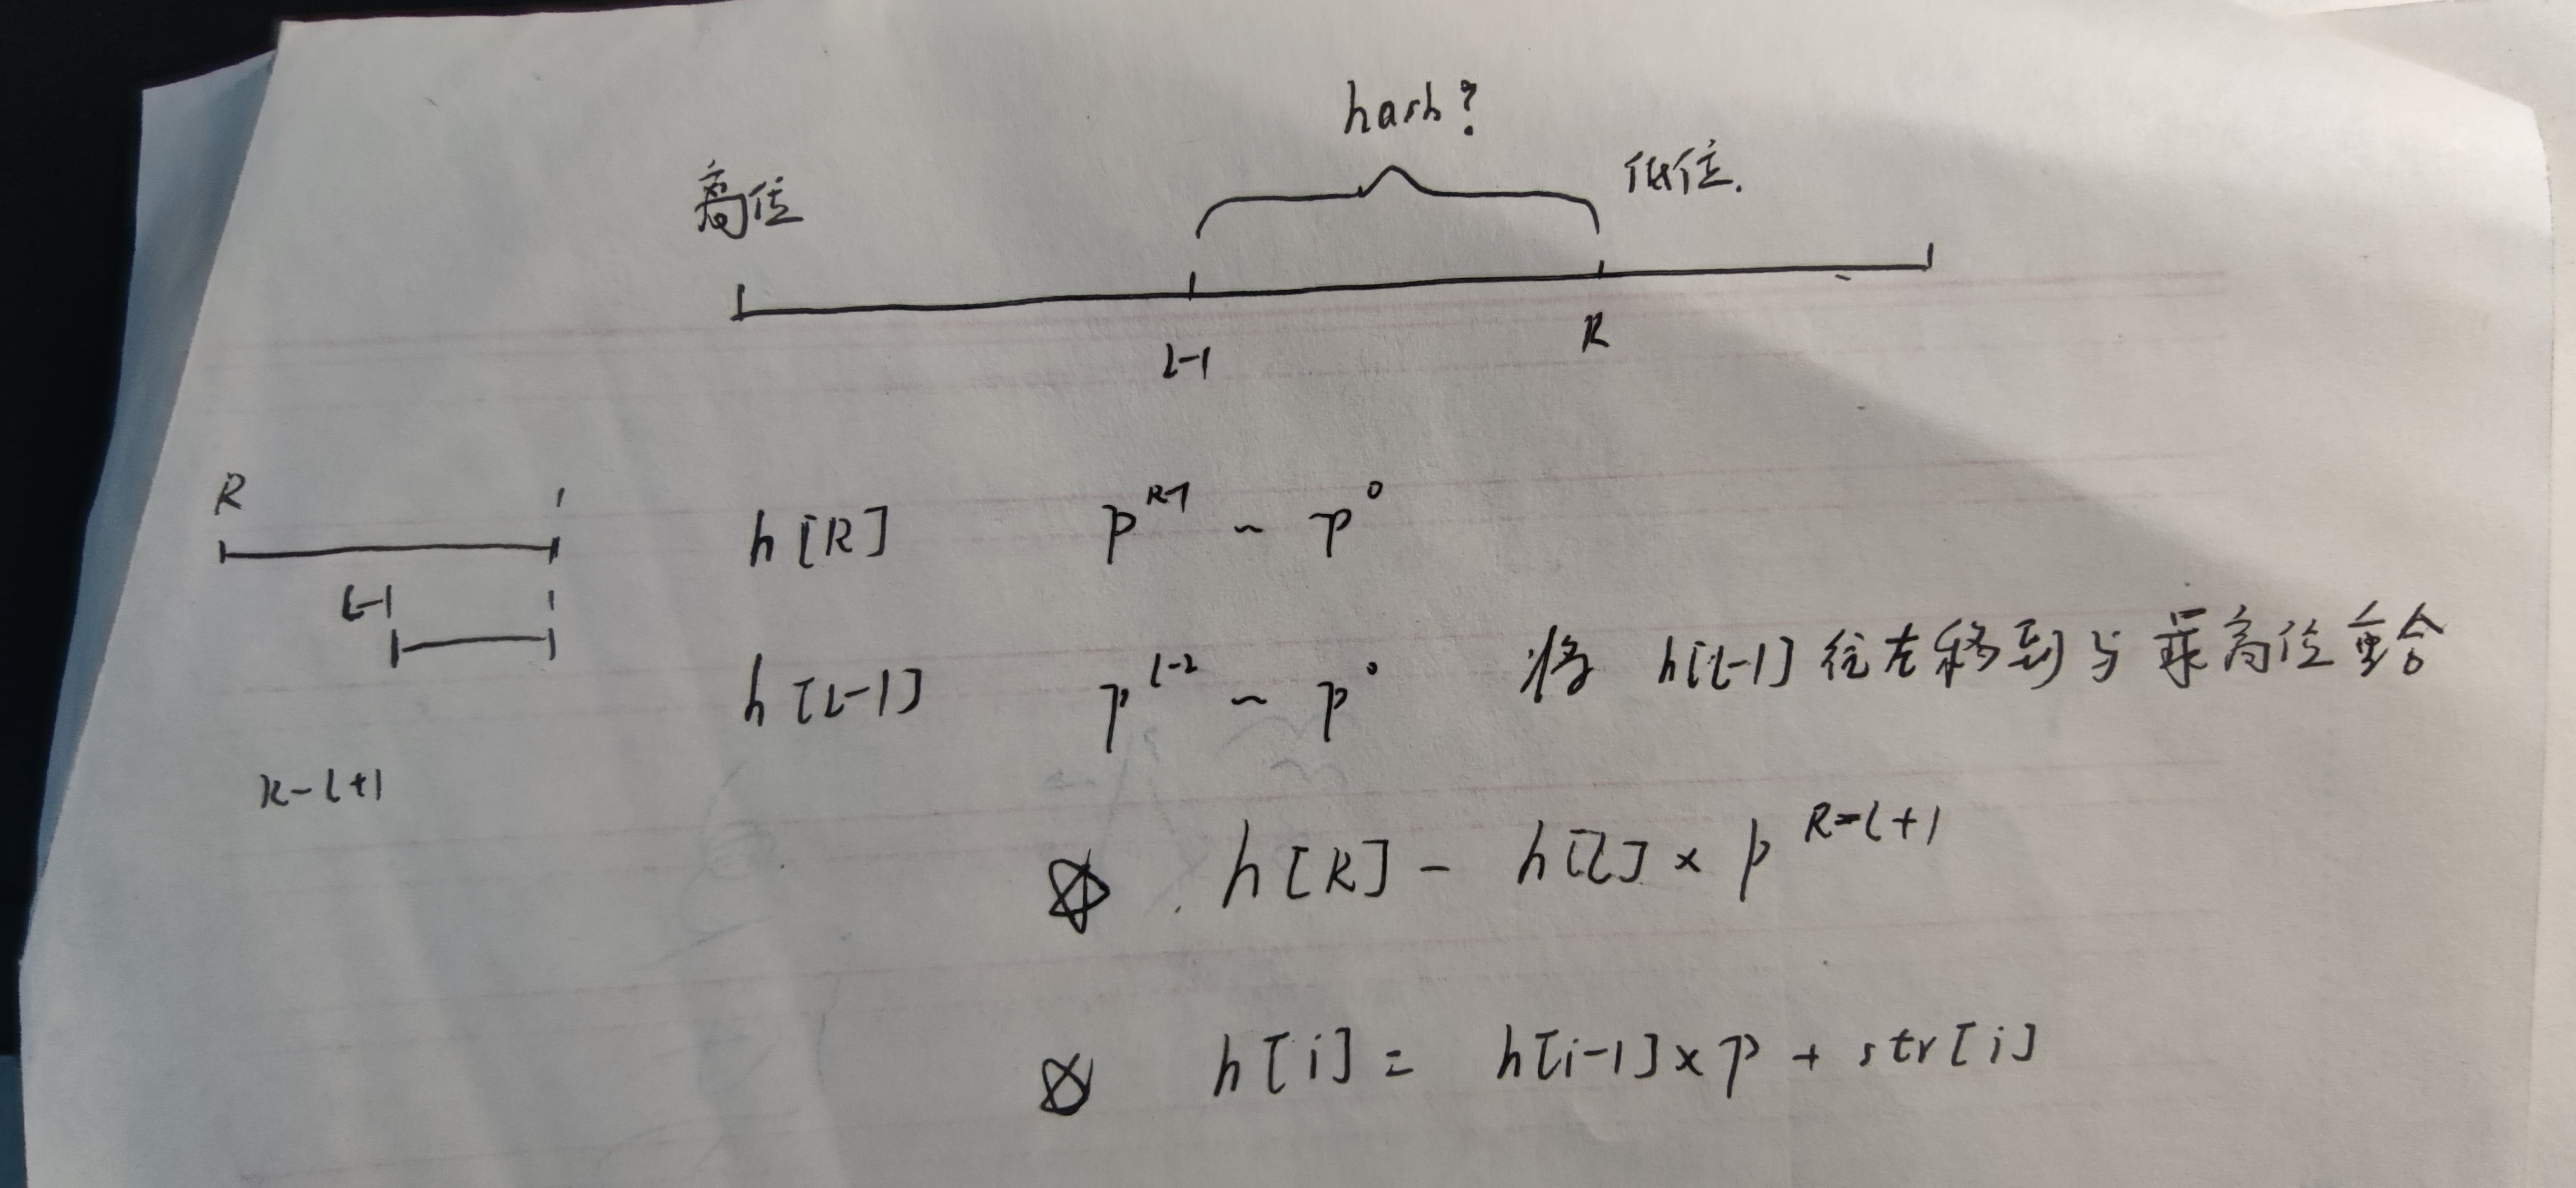 hash?
高位 低位.
L-1 R
R 1
h[R] p^{R-1} ~ p^0
L-1 1
h[L-1] p^{L-2} ~ p^0 将 h[L-1] 往左移到与最高位重合
R-L+1
☆ h[R] - h[L] × p^{R-L+1}
☆ h[i] = h[i-1] × p + str[i]